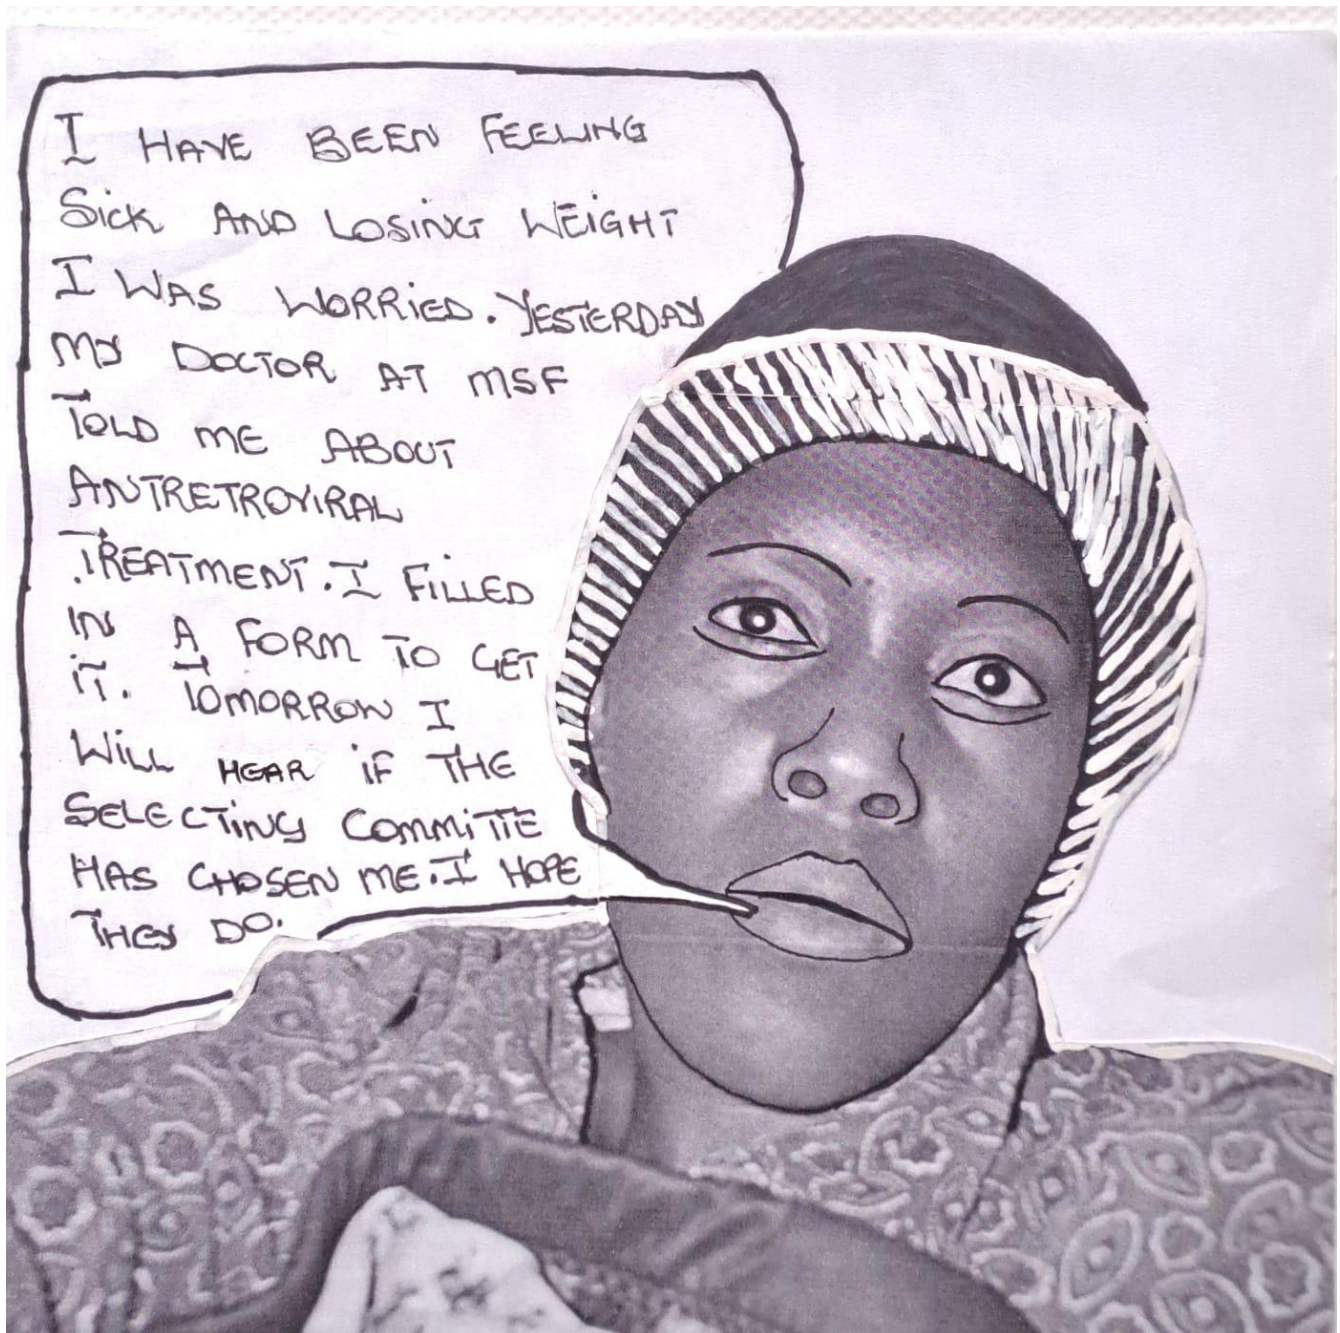 I HAVE BEEN FEELING
SicK AND LOSiNG WEiGHT
I WAS WORRiED. YESTERDAY
MY DOCTOR AT MSF
TOLD ME ABOUT
ANTRETROVIRAL
TREATMENT. I FiLLED
IN A FORM TO GET
iT. TOMORROW I
WiLL HEAR iF THE
SELECTiNG COMMiTTE
HAS CHOSEN ME. I HOPE
THEY DO.